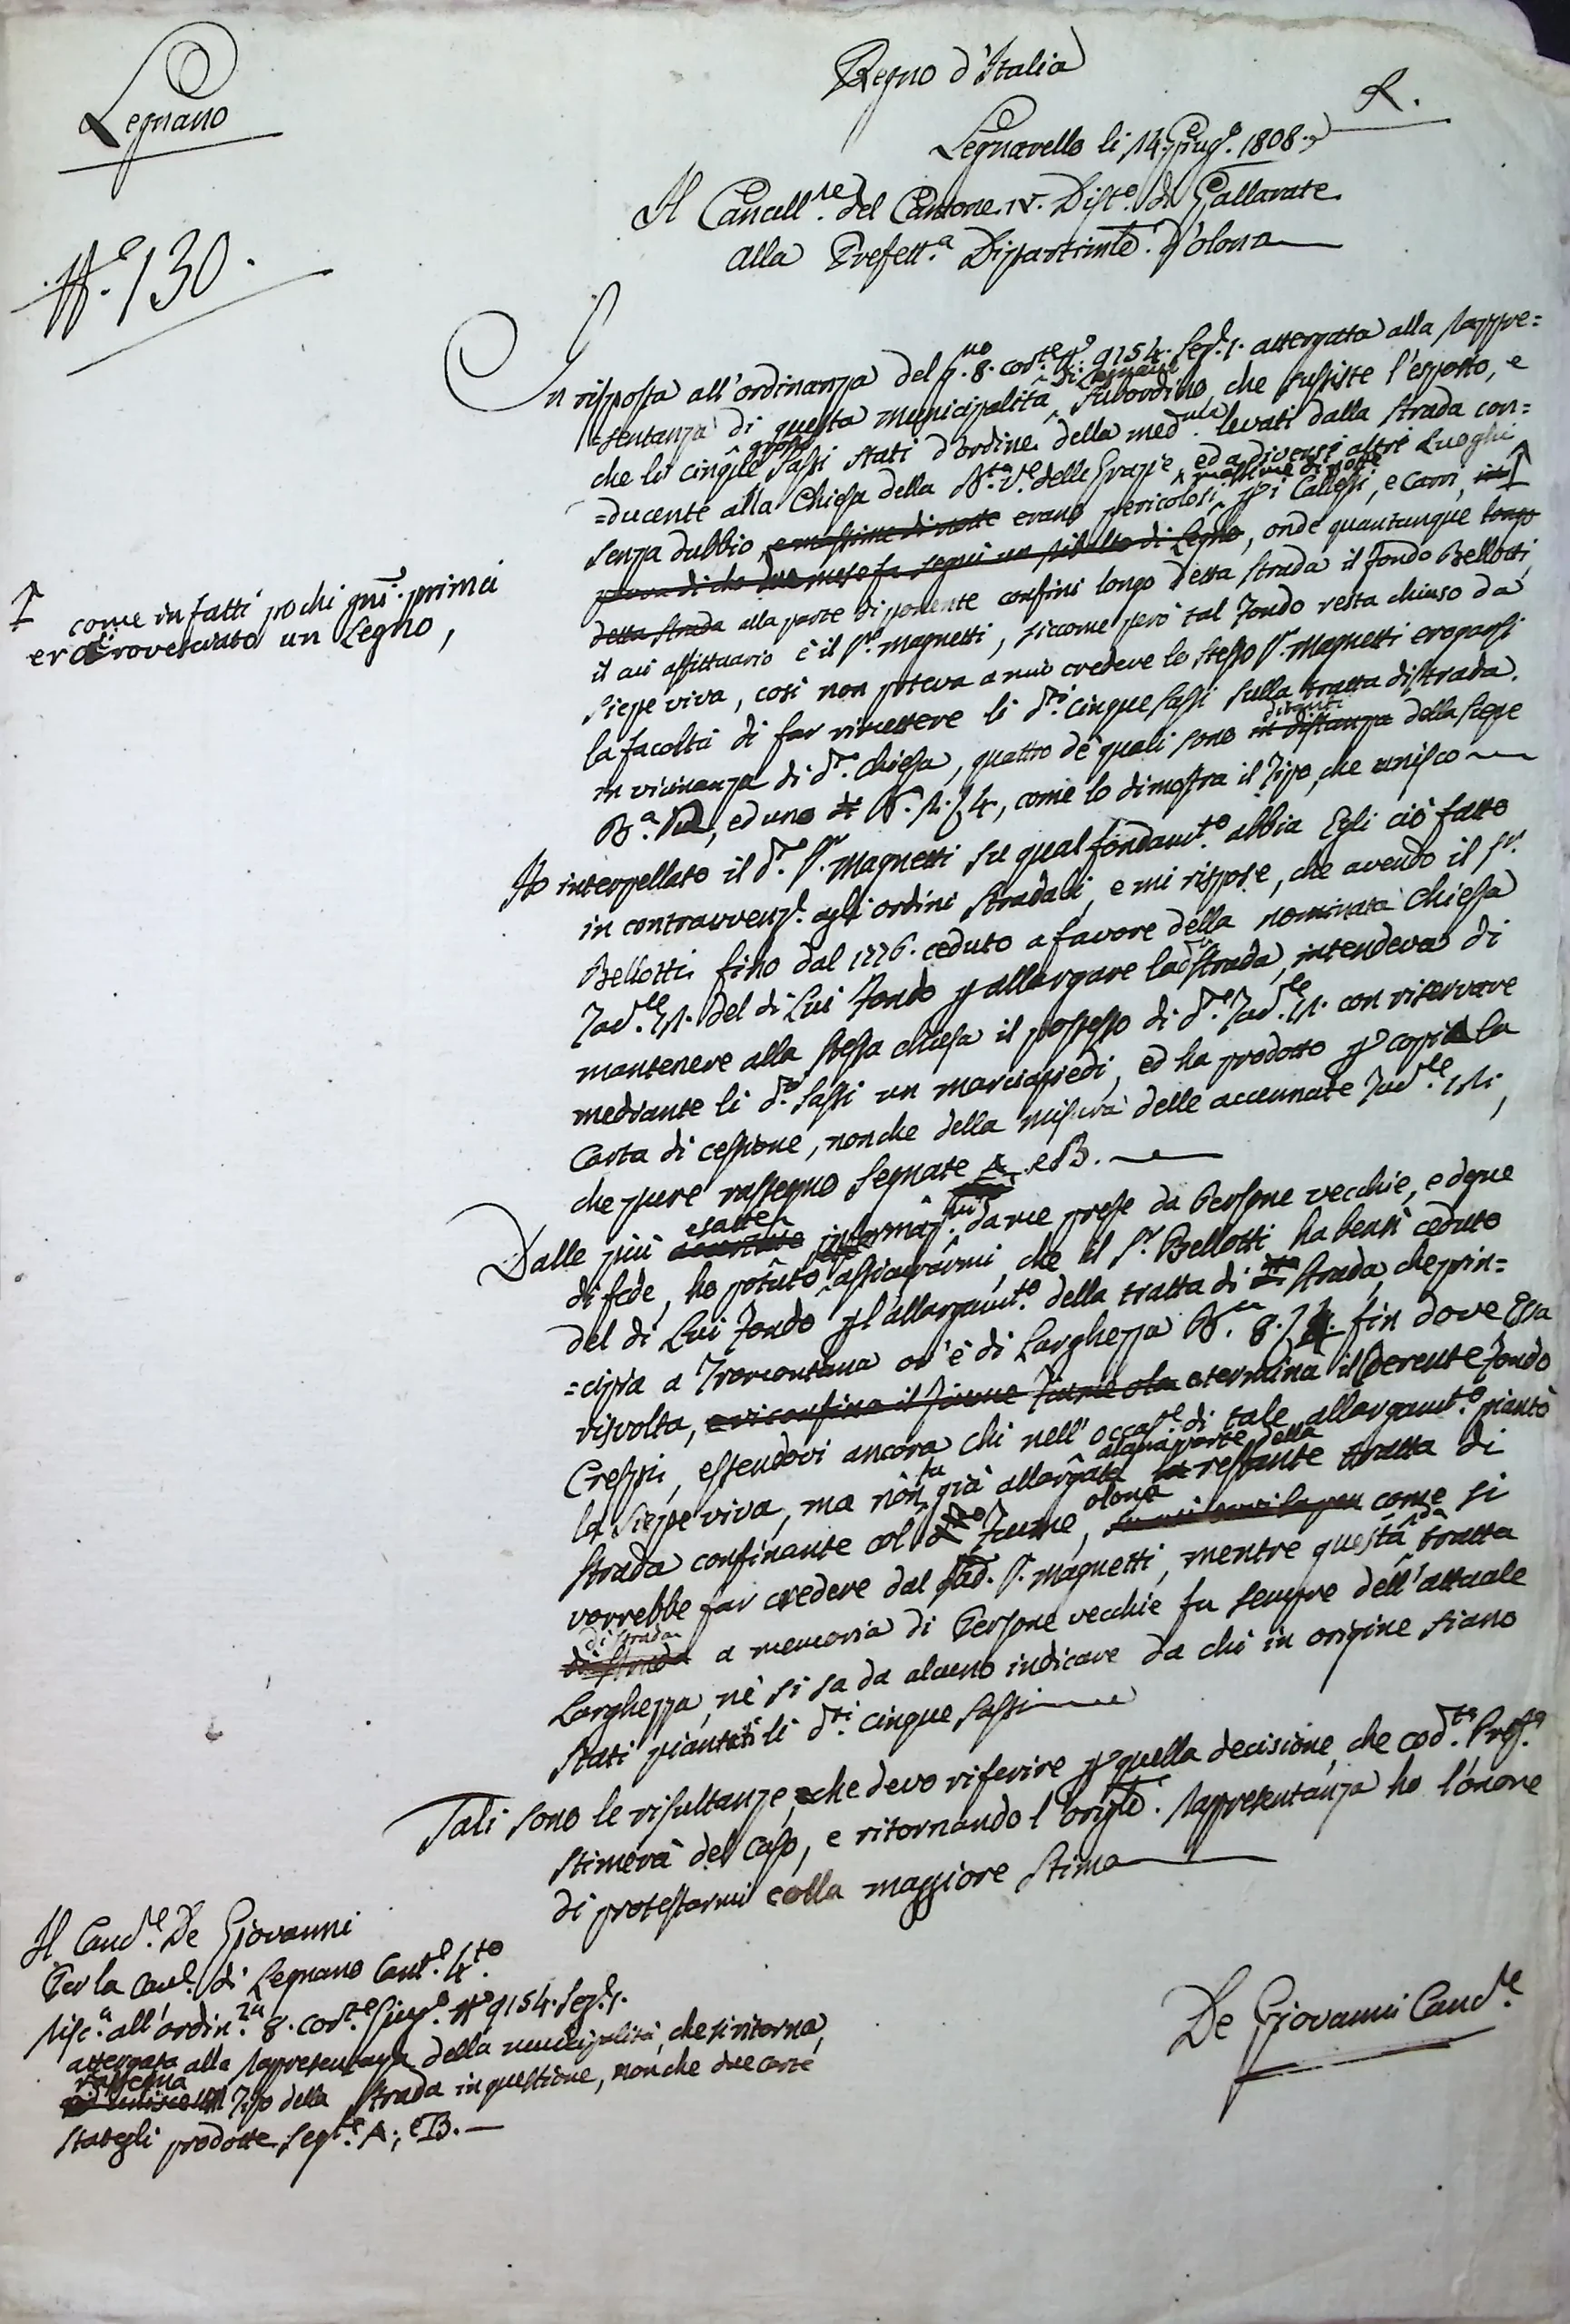 Legnano
N.º 130.
Regno d'Italia
R.
Legnarello li 14. Giugº. 1808.
Il Cancell.re del Cantone IV. Distº. di Gallarate
alla Prefett.a Dipartimle. d'Olona
In risposta all'ordinanza del gno. 8. corte. Nº. 9154. Sez. 1. attergata alla rappre=
=sentanza di questa municipalità di Legnano subordino, che sussiste l'esposto, e
che li cinque grossi sassi stati d'ordine della medma. levati dalla strada con=
=ducente alla Chiesa della Bta. Ve. delle Grazie, ed a diversi altri Luoghi
senza dubbio e massime di notte erano pericolosi massime di notte pei Callessi, e Carri, in
prova di che due mese fa seguì un ribalto di Legno, onde quantunque longo
detta strada alla parte di ponente confini longo detta strada il fondo Bellotti,
il cui affittuario è il Sr. Magnetti, siccome però tal fondo resta chiuso da
siepe viva, così non poteva a mio credere lo stesso Sr. Magnetti erogarsi
la facoltà di far rimettere li dti. cinque sassi sulla tratta di strada
in vicinanza di da. Chiesa, quattro de' quali sono in distanza distanti della siepe
ed uno come lo dimostra il Tipo, che unisco
come infatti pochi gni. prima
era rovesciato un Legno,
Ho interpellato il do. Sr. Magnetti su qual fondamto. abbia Egli ciò fatto
in contravvenze. agli ordini stradali, e mi rispose, che avendo il Sr.
Bellotti fino dal 1776. ceduto a favore della nominata Chiesa
Tavle. del di Lui fondo p allargare la da. strada, intendeva di
mantenere alla stessa chiesa il possesso di de. Tavle. con riservare
mediante li di. sassi un marciapiedi, ed ha prodotto p copia la
Carta di cessione, nonche della misura delle accennate Tavle.
che pure rassegno segnate A. e B.
Dalle più esatte informazni. da me prese da Persone vecchie, e degne
di fede, ho potuto assicurarmi, che il Sr. Bellotti ha bensì ceduto
del di Lui fondo pl'allargamto. della tratta di strada, che prin=
=cipia a Tramontana ov'è di Larghezza Ba. 8. fin dove Essa
risvolta, e vi confina il fiume e termina il Coerente fondo
Crespi, essendovi ancora chi nell'occane. di tale allargamto. piantò
la siepe viva, ma non fu già allargata alcuna parte della la restante tratta di
strada confinante col fiume Olona, come si
vorrebbe far credere dal Sr. Magnetti, mentre questa tratta
di strada di strada a memoria di Persone vecchie fu sempre dell'attuale
Larghezza, nè si sa da alcuno indicare da chi in origine siano
stati piantati li dti. cinque sassi
Tali sono le risultanze, che devo riferire p quella decisione, che codta. Prefa.
stimerà del caso, e ritornando l'origle. rappresentanza ho l'onore
di protestarmi colla maggiore stima
De Giovanni Cancle.
Il Cancle. De Giovanni
Per la Canc. di Legnano Cant. 4to.
Risca. all'ordinza. 8. corte. Giugº. Nº 9154. Sez. 1.
attergata alla rappresentanza della municipalità, che si ritorna,
rassegna ed unisce un Tipo della strada in questione, nonche due carte
stategli prodotte segte. A; e B.